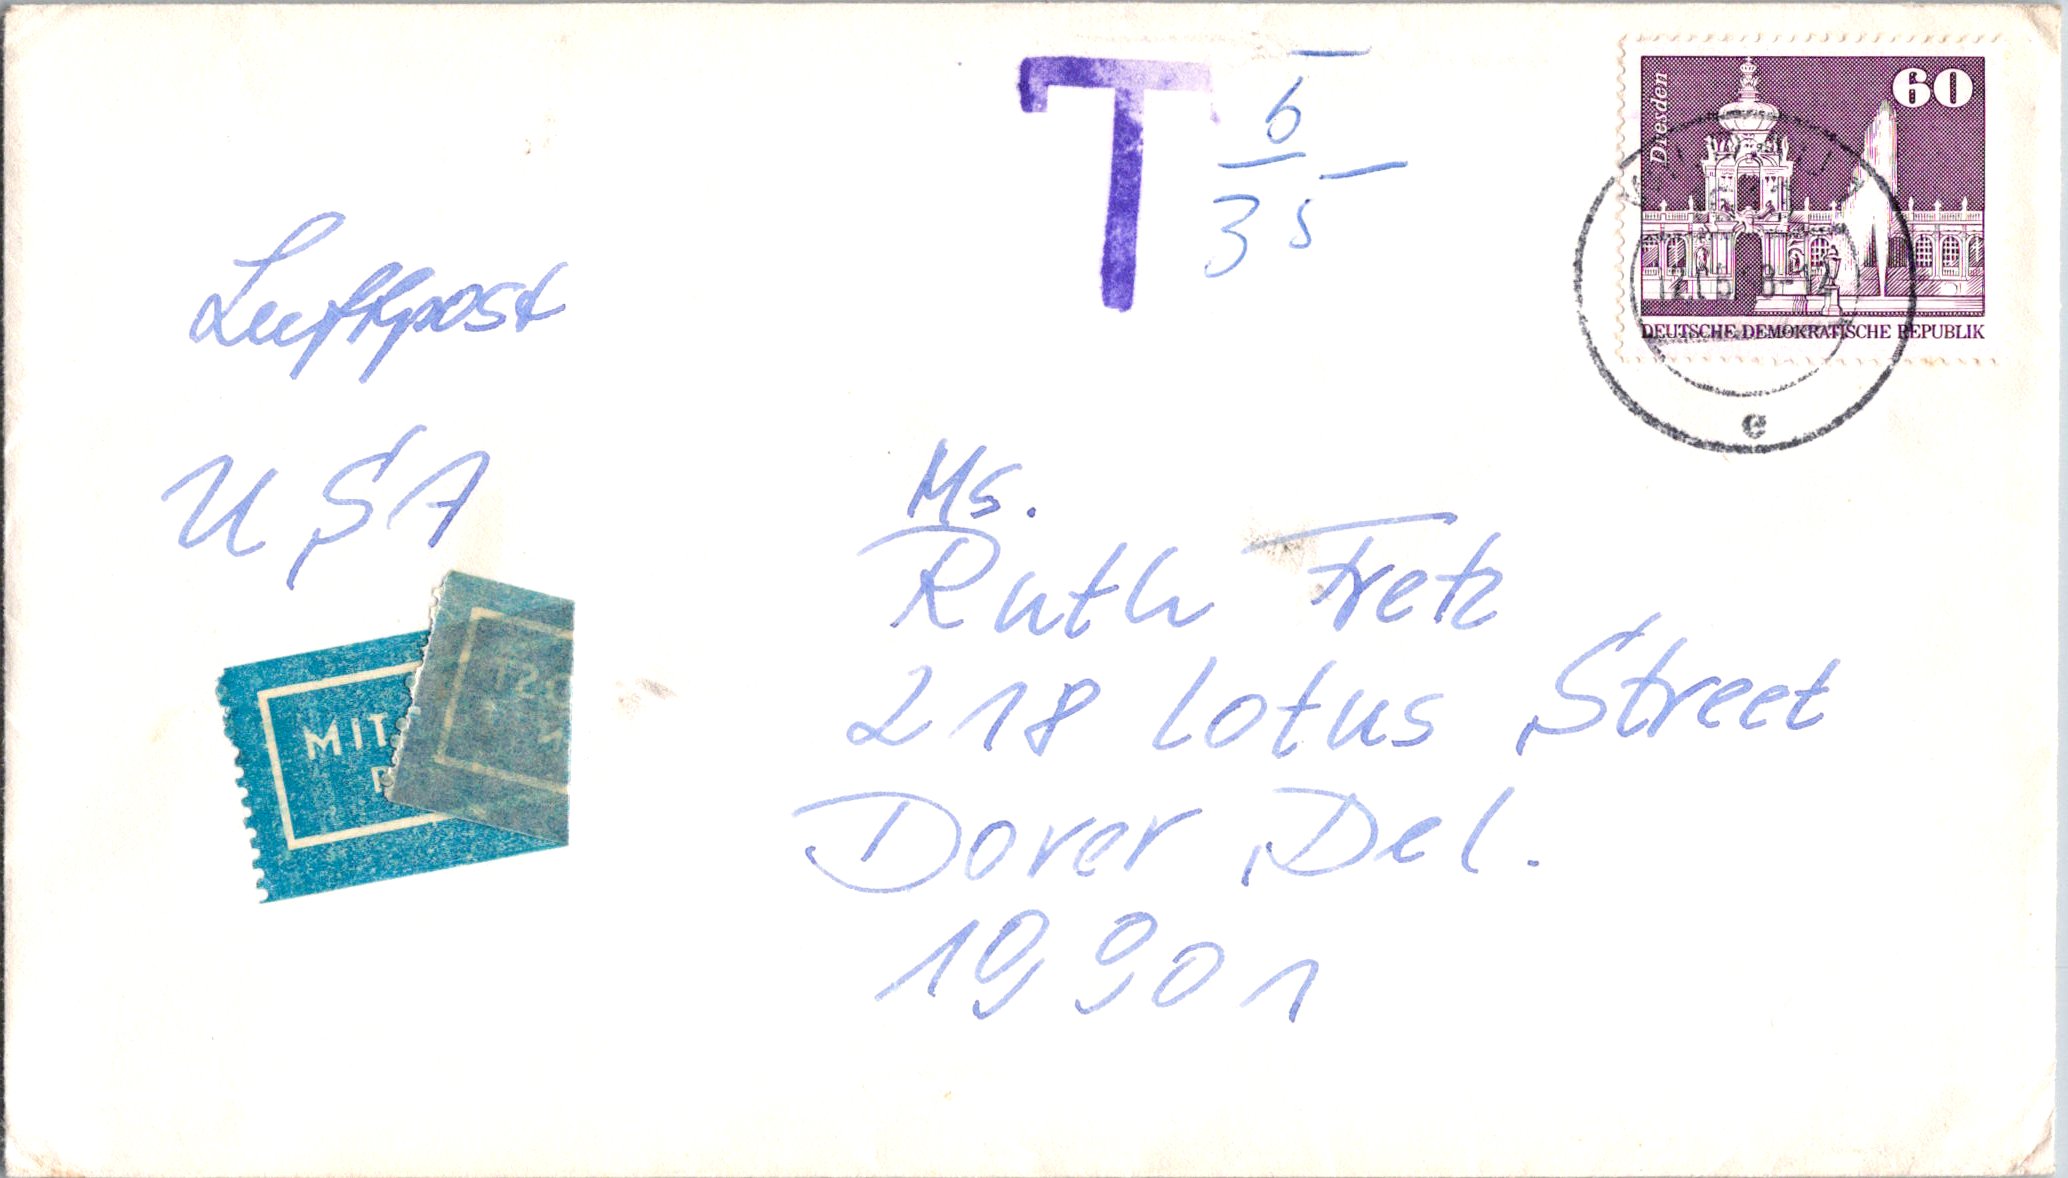 T
6
3 5
60
Dresden
DEUTSCHE DEMOKRATISCHE REPUBLIK
e
Luftpost
USA
MIT
Ms.
Ruth Fretz
218 Lotus Street
Dover Del.
19901